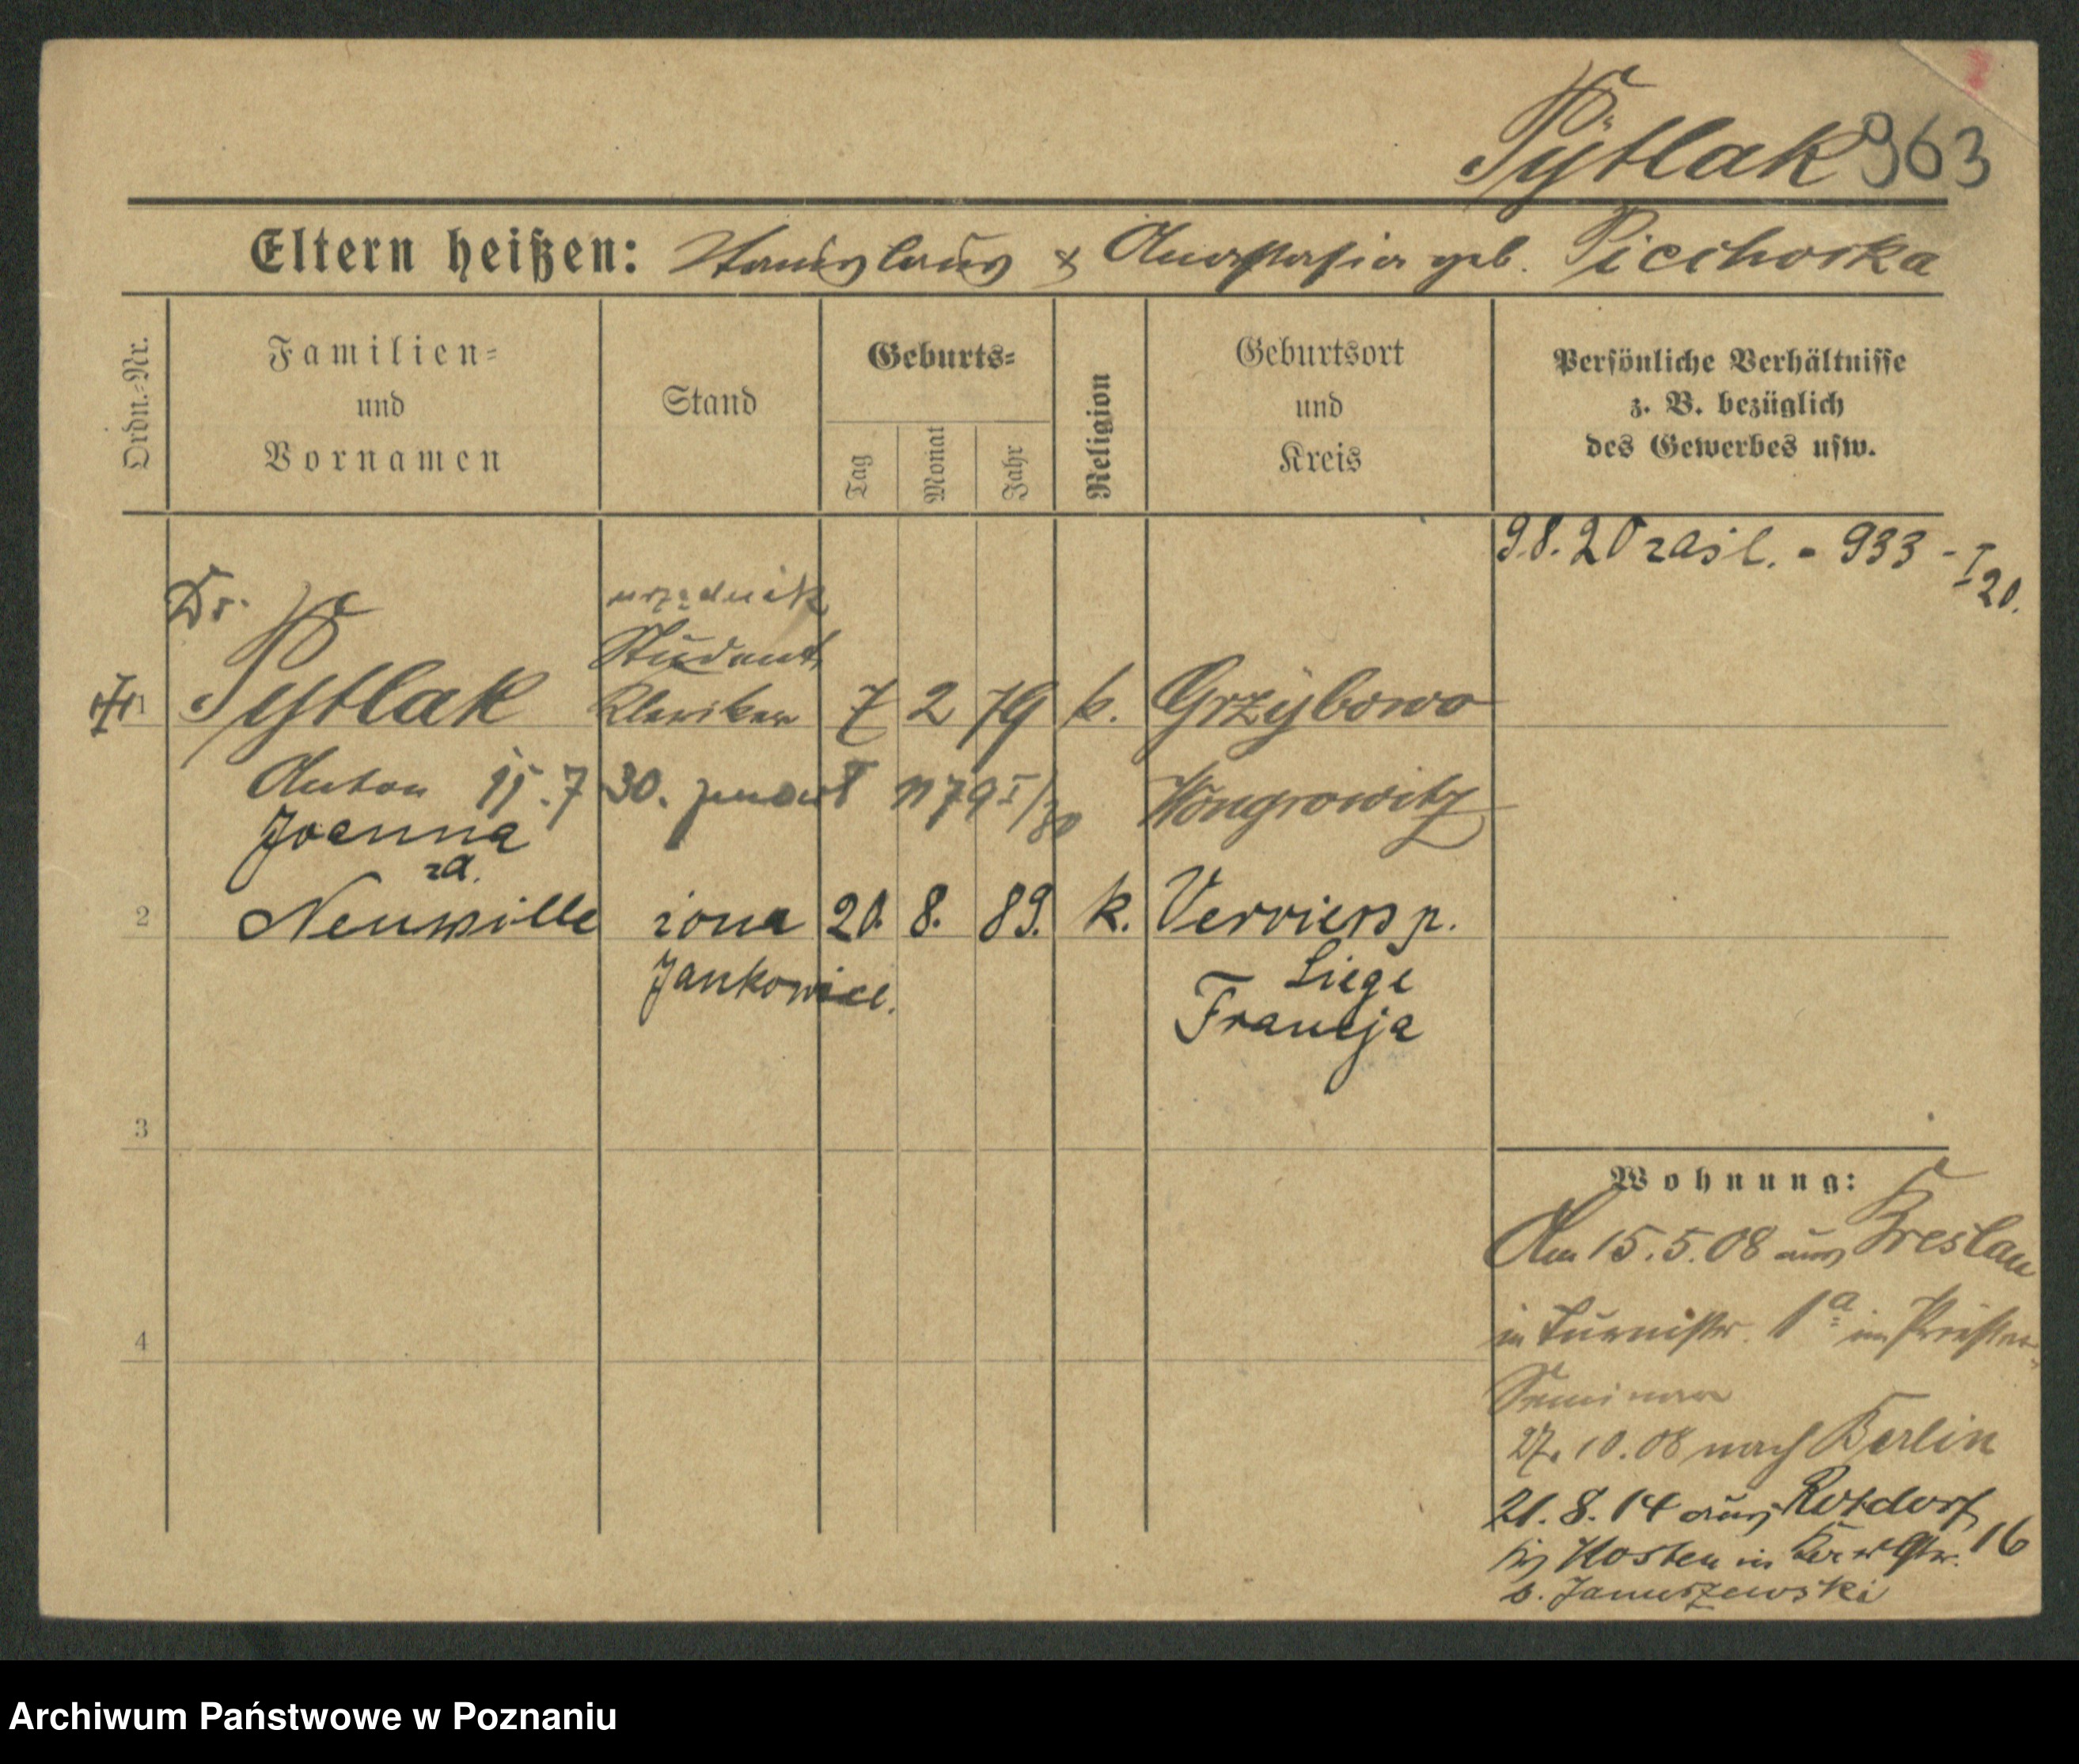 Pytlak 963
Eltern heißen: Stanislaus & Anastasia geb. Piechocka
Ordn.-Nr.
Familien-
und
Vornamen
Stand
Geburts-
Tag
Monat
Jahr
Religion
Geburtsort
und
Kreis
Persönliche Verhältnisse
z. B. bezüglich
des Gewerbes usw.
9.8.20 zasi. - 933 - I 20.
Dr.
urzędnik
Student
1 Pytlak Kleriker 7 2 79 k. Grzybowo
Anton Wongrowitz
Joanna
zd.
2 Neuville żona 20. 8. 89. k. Verviers p.
Jankowice. Liege
Francja
3
Wohnung:
Am 15.5.08 aus Breslau
4
in Turnistr. 1a im Priester-
Seminar
27.10.08 nach Berlin
21.8.14 aus Rotdorf
Kr Kosten in 16
b. Januszewski
Archiwum Państwowe w Poznaniu